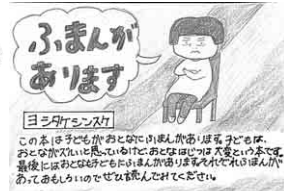 ふまんが
あります
ヨシタケシンスケ
この本は子どもがおとなにふまんがあります。子どもは、
おとながズルいと思っているけどおとなはじつは大変という本です。
最後にはおとなも子どもにふまんがあります。それぞれふまんが
あっておもしろいのでぜひ読んでみてください。